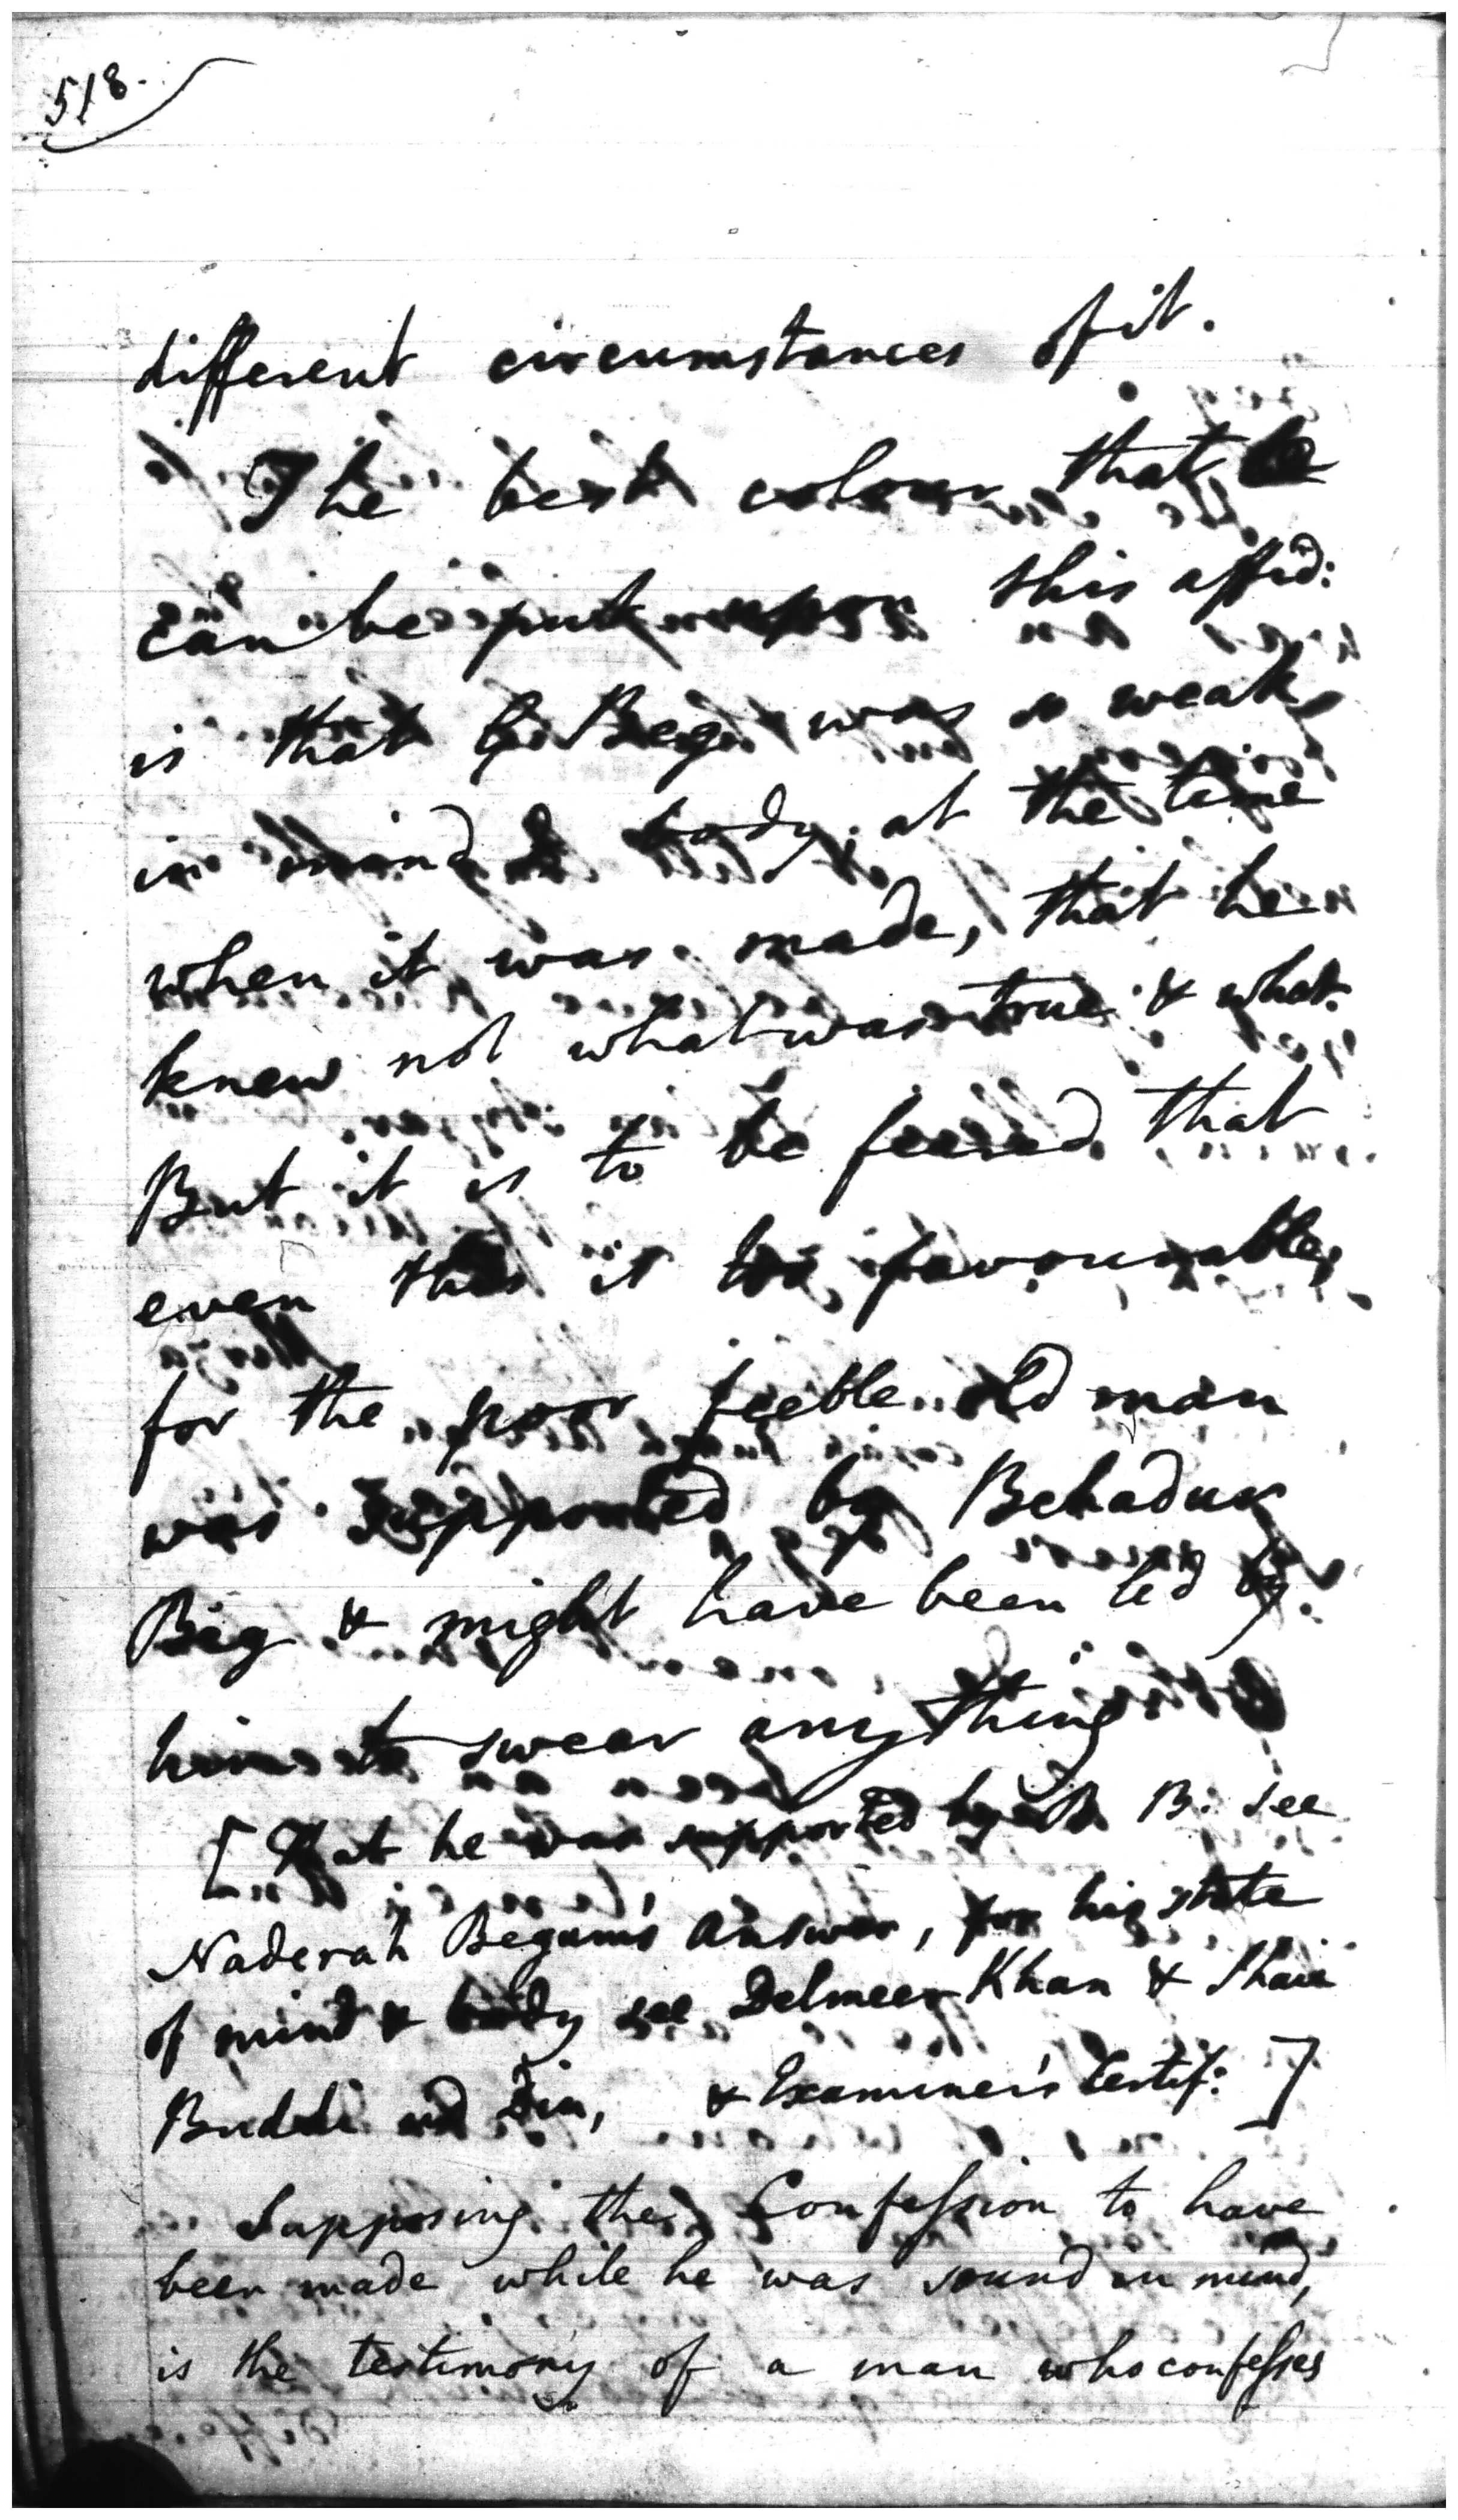 518.
different circumstances of it.
The best colour that
can be put upon this affid:
is that G. Beg was so weak
in mind & body, at the time
when it was made, that he
knew not what was true & what
But it is to be feared that
even this is too favourable,
for the poor feeble old man
was supported by Behadur
Big & might have been led by
him to swear anything
[That he was supported by B. see
Naderah Begum's Answer, for his state
of mind & body see Delmeer Khan & Shaie
Buddi ud Din, & Examiner's Certif: ]
Supposing the Confession to have
been made while he was sound in mind,
is the testimony of a man who confesses